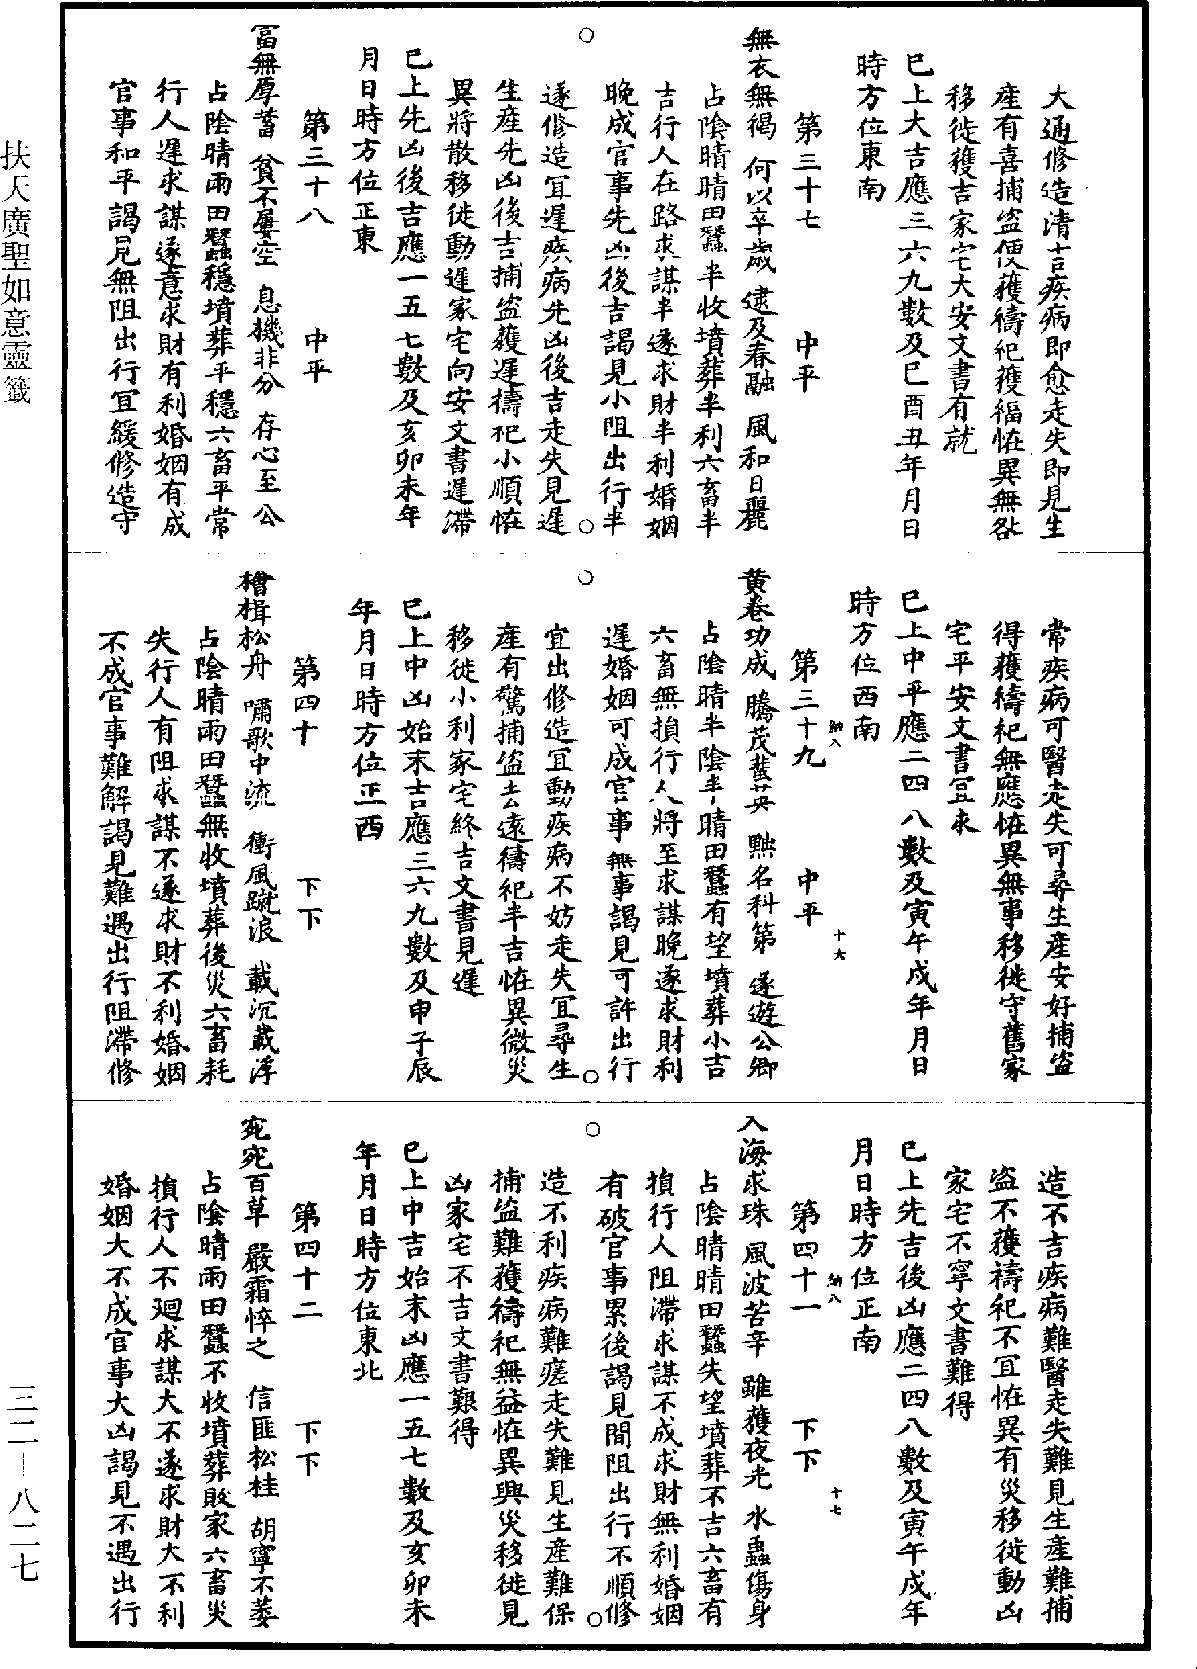 大通修造清吉疾病即愈走失即見生
產有喜捕盜便獲禱祀獲福恠異無咎
移徙獲吉家宅大安文書有就
巳上大吉應三六九數及巳酉丑年月日
時方位東南
第三十七 中平
無衣無褐 何以卒歲 逮及春融 風和日麗
占陰晴晴田蠶半收墳葬半利六畜半
吉行人在路求謀半遂求財半利婚姻
晚成官事先凶後吉謁見小阻出行半
遂修造冝遲疾病先凶後吉走失見遲
生產先凶後吉捕盜獲遲禱祀小順恠
異將散移徙動遲家宅向安文書遲滯
巳上先凶後吉應一五七數及亥卯未年
月日時方位正東
第三十八 中平
富無厚蓄 貧不屢空 息機非分 存心至公
占陰晴雨田蠶穩墳葬平穩六畜平常
行人遲求謀遂意求財有利婚姻有成
官事和平謁見無阻出行冝緩修造守
常疾病可醫走失可尋生產安好捕盜
得獲禱祀無應恠異無事移徙守舊家
宅平安文書冝求
巳上中平應二四八數及寅午戌年月日
時方位西南
納八 十六
第三十九 中平
黄卷功成 騰茂蜚英 點名科第 遂遊公卿
占陰晴半陰半晴田蠶有望墳葬小吉
六畜無損行人將至求謀晚遂求財利
遲婚姻可成官事無事謁見可許出行
宜出修造冝動疾病不妨走失冝尋生
產有驚捕盜去遠禱祀半吉恠異微災
移徙小利家宅終吉文書見遲
巳上中凶始末吉應三六九數及申子辰
年月日時方位正西
第四十 下下
檜楫松舟 嘯歌中流 衝風蹴浪 載沉載浮
占陰晴雨田蠶無收墳葬後災六畜耗
失行人有阻求謀不遂求財不利婚姻
不成官事難解謁見難遇出行阻滯修
造不吉疾病難醫走失難見生產難捕
盜不獲禱祀不冝恠異有災移徙動凶
家宅不寧文書難得
巳上先吉後凶應二四八數及寅午戌年
月日時方位正南
納八 十七
第四十一 下下
入海求珠 風波苦辛 雖獲夜光 水蟲傷身
占陰晴晴田蠶失望墳葬不吉六畜有
損行人阻滯求謀不成求財無利婚姻
有破官事累後謁見間阻出行不順修
造不利疾病難瘥走失難見生產難保
捕盜難獲禱祀無益恠異興災移徙見
凶家宅不吉文書艱得
巳上中吉始末凶應一五七數及亥卯未
年月日時方位東北
第四十二 下下
宛宛百草 嚴霜悴之 信匪松桂 胡寧不萎
占陰晴雨田蠶不收墳葬敗家六畜災
損行人不廻求謀大不遂求財大不利
婚姻大不成官事大凶謁見不遇出行
扶天廣聖如意靈籤
三二—八二七